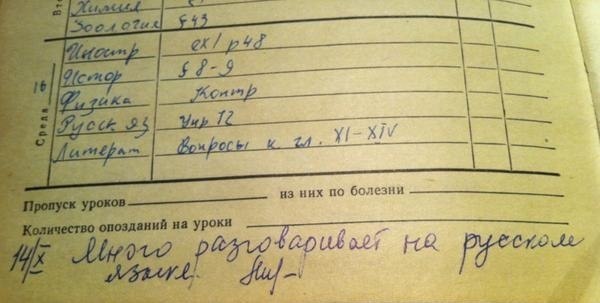 Вт
Химия
Зоология §43
Среда 16
Иностр ex1 p48
Истор §8-9
Физика Контр
Русск яз Упр 12
Литерат Вопросы к гл. XI-XIV
Пропуск уроков из них по болезни
Количество опозданий на уроки
14/X Много разговаривает на русском
языке.